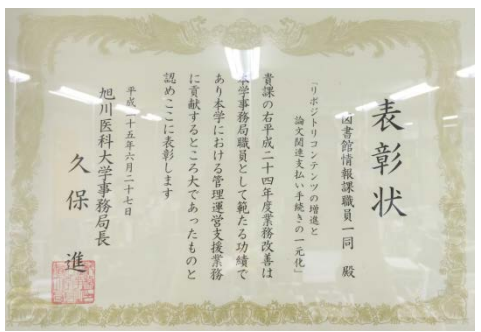 表彰状
図書館情報課職員一同 殿
「リポジトリコンテンツの増進と
論文関連支払い手続きの一元化」
貴課の右平成二十四年度業務改善は
本学事務局職員として範たる功績で
あり本学における管理運営支援業務
に貢献するところ大であったものと
認めここに表彰します
平成二十五年六月二十七日
旭川医科大学事務局長
久保 進